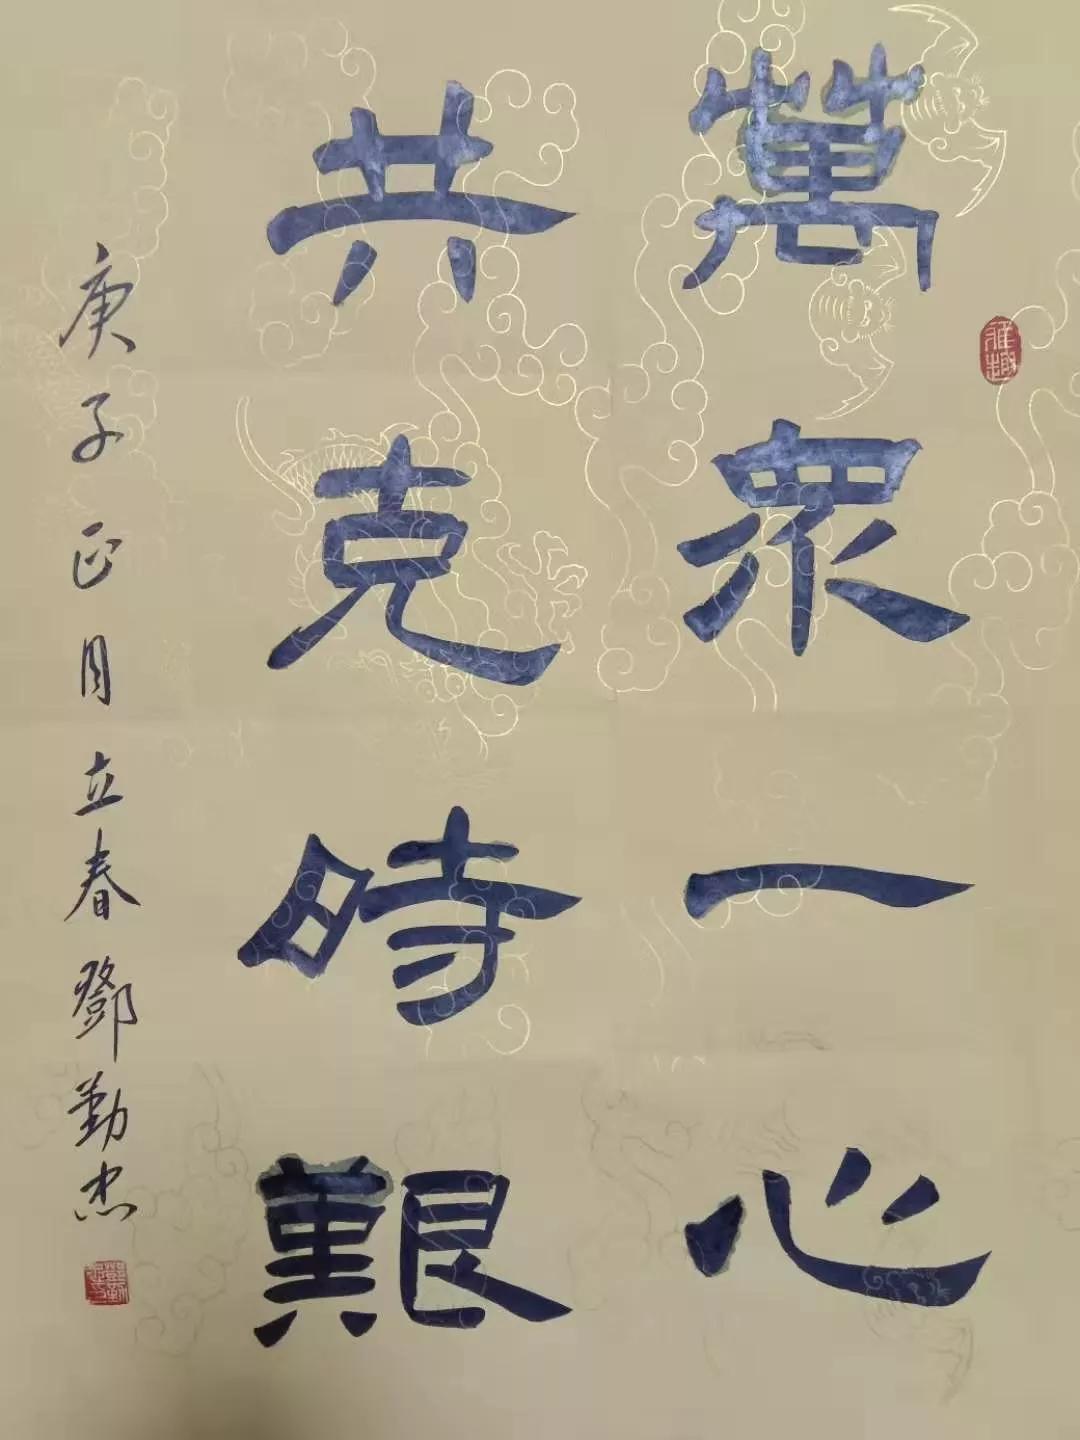 萬眾一心
共克時艱
庚子正月立春鄧勤杰
雅趣